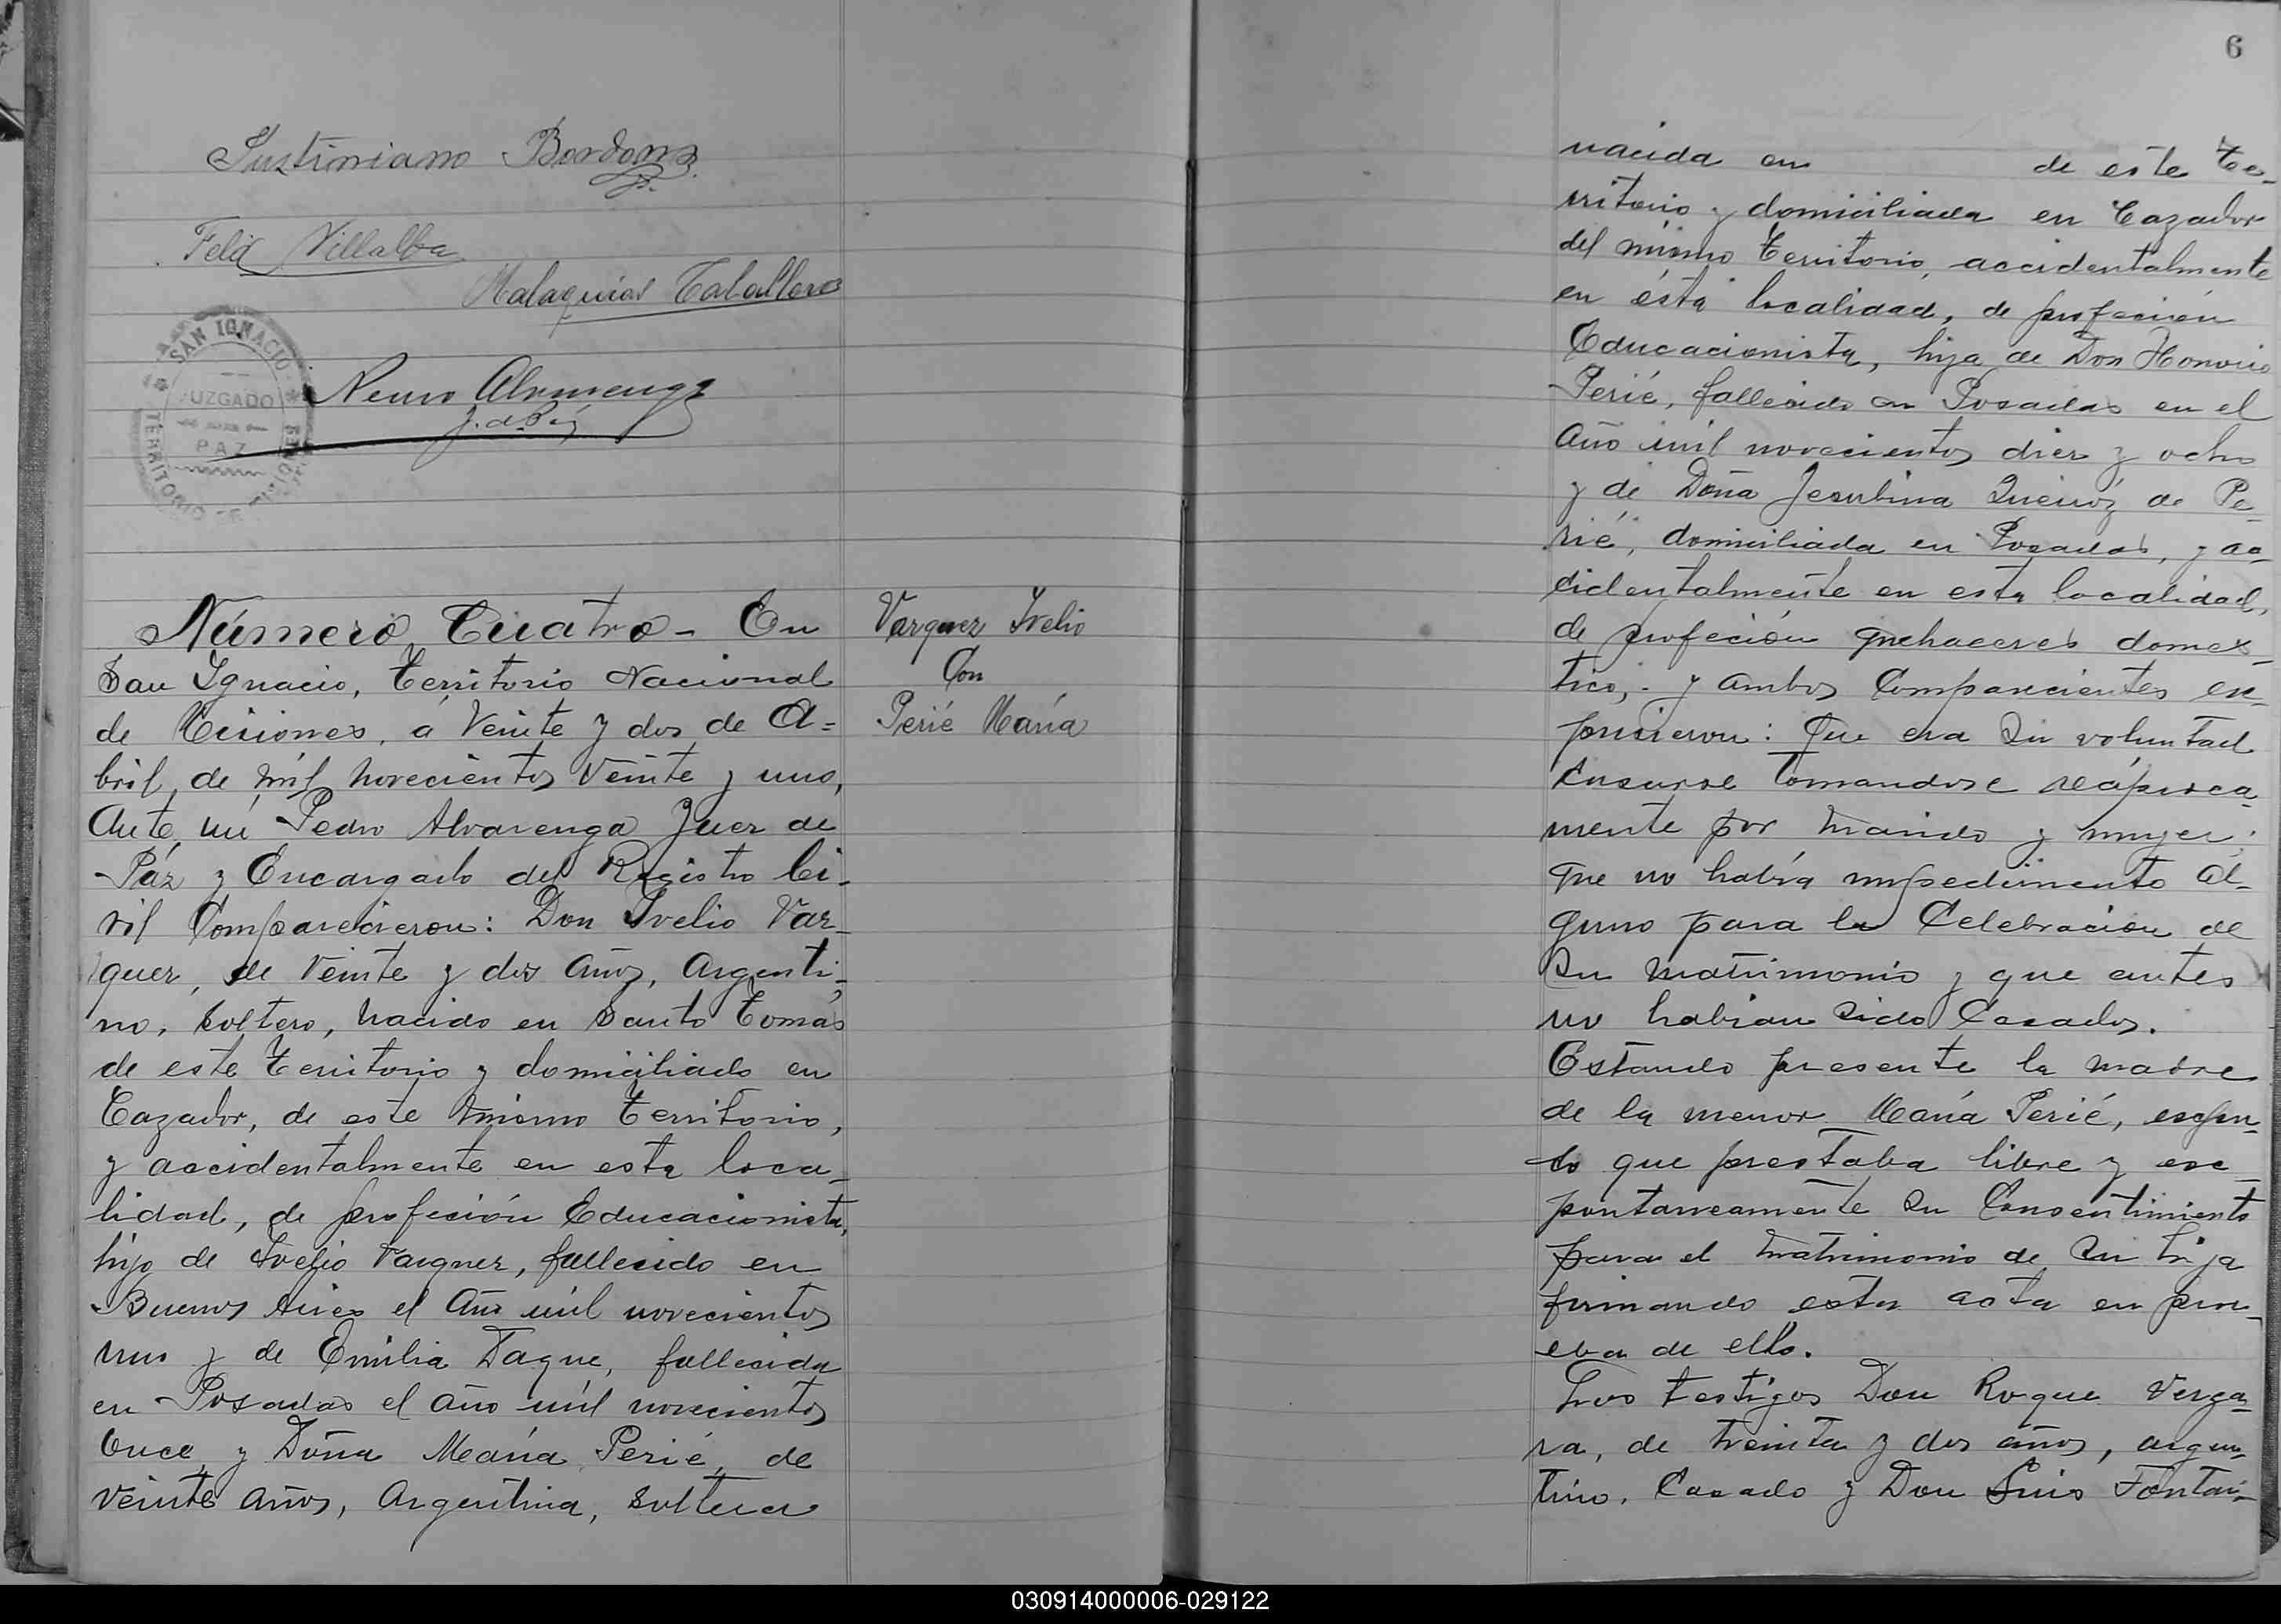 Justiniano Bordon
Felix Villalba
Malaquias Caballero
SAN IGNACIO
JUZGADO
DE
PAZ
TERRITORIO DE MISIONES
Pedro Alvarenga
J. de Paz
Número Cuatro - En
San Ignacio, Territorio Nacional
de Misiones, á Veinte y dos de A=
bril, de mil novecientos Veinte y uno,
Ante mi Pedro Alvarenga Juez de
Páz y Encargado del Registro Ci-
vil Comparecieron: Don Ivelio Vaz-
quez, de Veinte y dos Años, Argenti-
no, soltero, nacido en Santo Tomás
de este Territorio y domiciliado en
Cazador, de este mismo Territorio,
y accidentalmente en esta loca-
lidad, de profeción Educacionista,
hijo de Ivelio Vazquez, fallecido en
Buenos Aires el Año mil novecientos
uno y de Emilia Daque, fallecida
en Posadas el año mil novecientos
Once, y Doña María Perié, de
veinte años, Argentina, soltera
Vazquez Ivelio
Con
Perié María
6
nacida en de este Te-
rritorio y domiciliada en Cazador
del mismo Territorio, accidentalmente
en ésta localidad, de profeción
Educacionista, hija de Don Honorio
Perié, fallecido en Posadas en el
Año mil novecientos diez y ocho
y de Doña Jesubina Queiróz de Pe-
rié, domiciliada en Posadas, y ac-
cidentalmente en esta localidad,
de profeción quehaceres domes-
tico,- y ambos Comparecientes ex-
pusieron: Que era su voluntad
casarse tomandose recíproca-
mente por marido y mujer;
que no había impedimento al-
guno para la Celebración de
su matrimonio y que antes
no habian sido Casados.
Estando presente la madre
de la menor María Perié, expu-
so que prestaba libre y es-
pontaneamente su Consentimiento
para el matrimonio de su hija
firmando esta acta en pru-
eba de ello.
Los testigos Don Roque Verga-
ra, de treinta y dos años, argen-
tino, Casado y Don Luis Fontai-
030914000006-029122